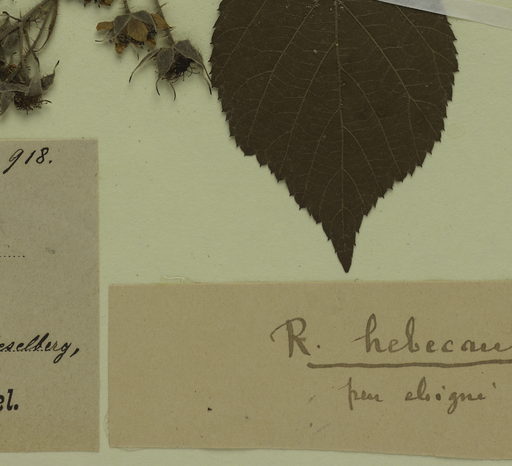 918.
eselberg,
el.
R. hebecau
peu eloigné